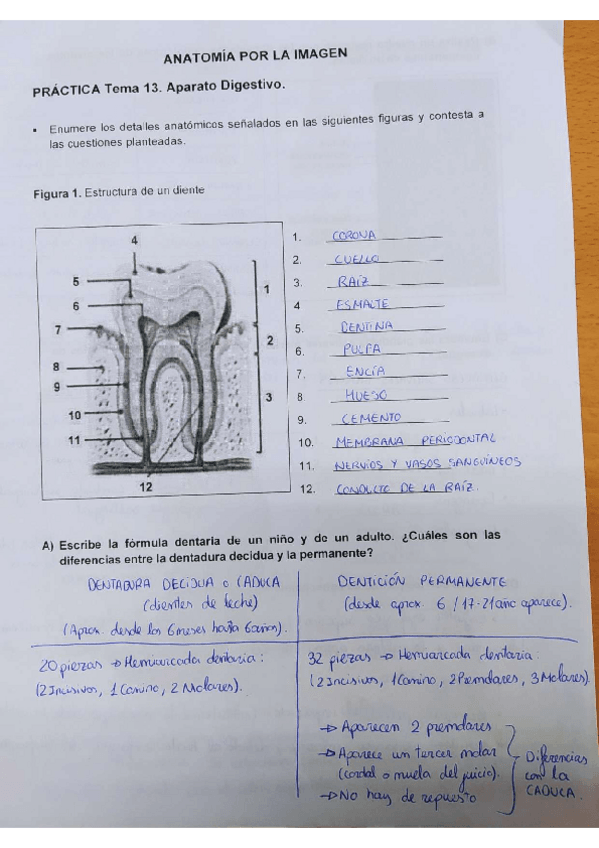 ANATOMÍA POR LA IMAGEN
PRÁCTICA Tema 13. Aparato Digestivo.
• Enumere los detalles anatómicos señalados en las siguientes figuras y contesta a
las cuestiones planteadas.
Figura 1. Estructura de un diente
4
5
6
7
8
9
10
11
12
1
2
3
1. CORONA
2. CUELLO
3. RAÍZ
4 ESMALTE
5. DENTINA
6. PULPA
7. ENCÍA
8. HUESO
9. CEMENTO
10. MEMBRANA PERIODONTAL
11. NERVIOS Y VASOS SANGUÍNEOS
12. CONDUCTO DE LA RAÍZ.
A) Escribe la fórmula dentaria de un niño y de un adulto. ¿Cuáles son las
diferencias entre la dentadura decidua y la permanente?
DENTADURA DECIDUA o CADUCA
(dientes de leche)
(Aprox. desde los 6 meses hasta 6 años).
20 piezas → Hemiarcada dentaria:
(2 Incisivos, 1 Canino, 2 Molares).
DENTICIÓN PERMANENTE
(desde aprox. 6 / 17-21 año aparece).
32 piezas → Hemiarcada dentaria:
(2 Incisivos, 1 Canino, 2 Premolares, 3 Molares).
→ Aparecen 2 premolares
→ Aparece un tercer molar
(cordal o muela del juicio).
→ No hay de repuesto
Diferencias
con la
CADUCA.